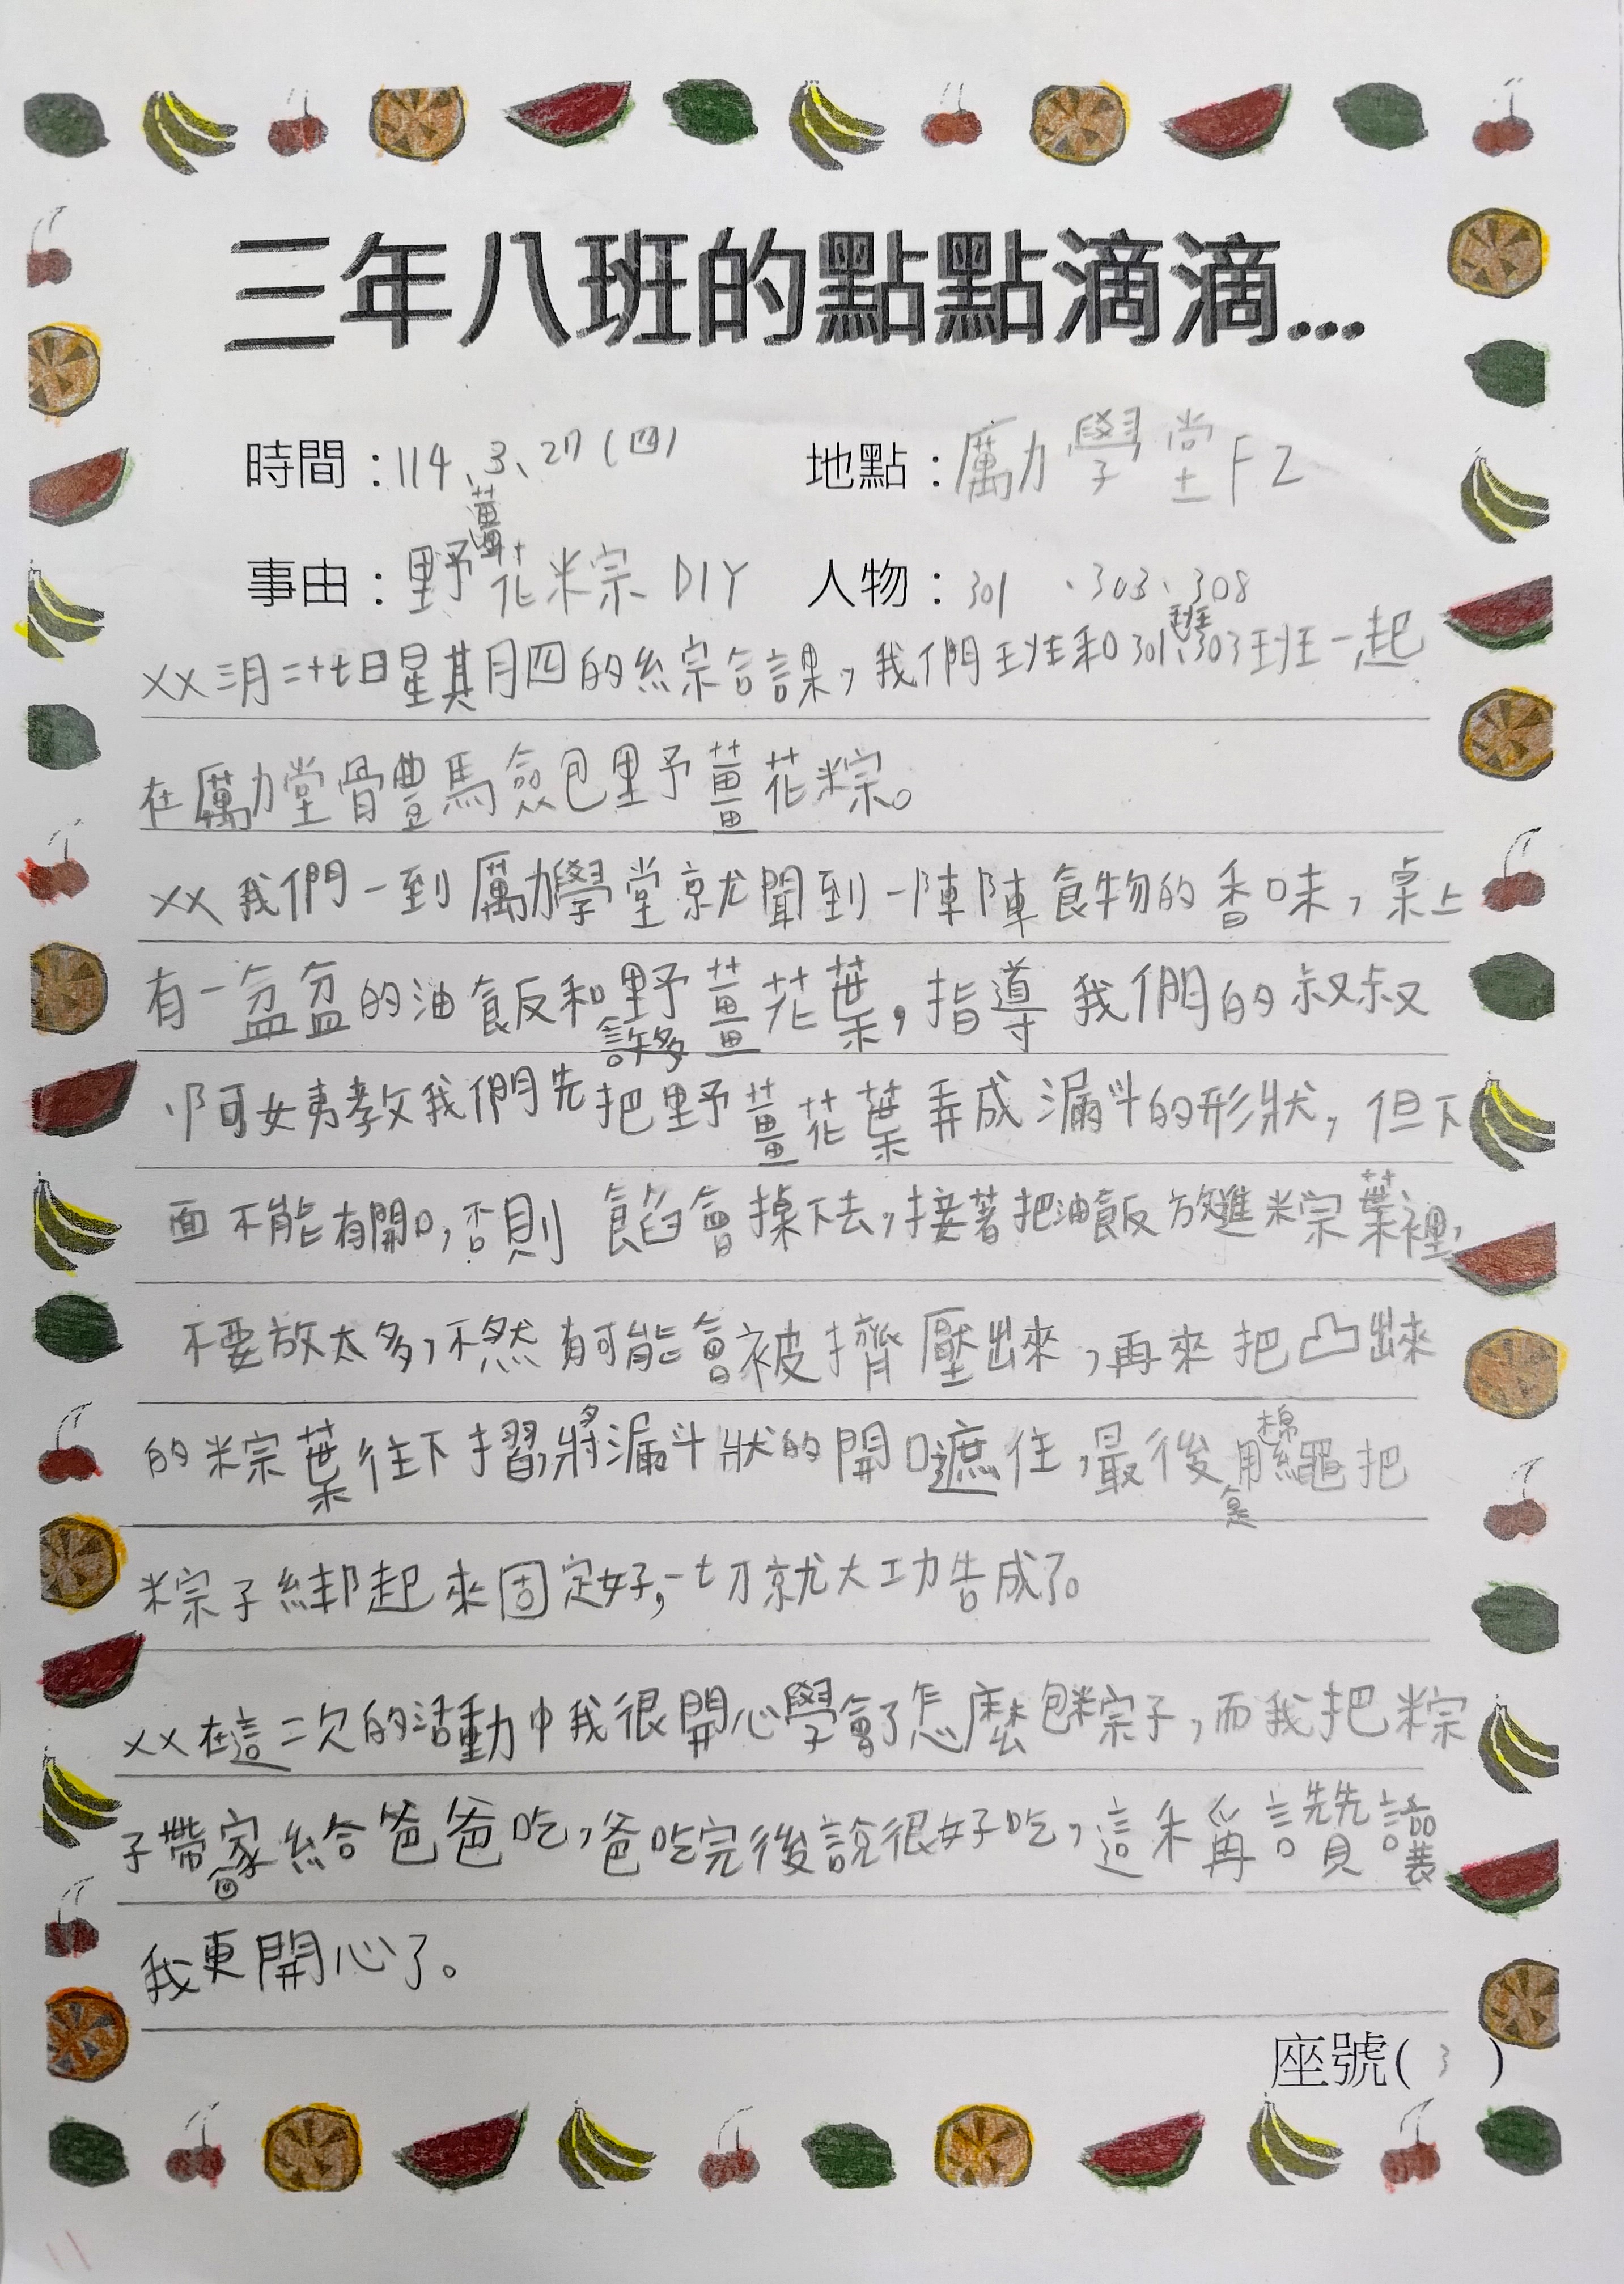 三年八班的點點滴滴...
時間：114、3、27(四) 地點：厲力學堂F2
事由：野薑花粽DIY 人物：301、303、308
XX三月二十七日星其月四的綜合課，我們班和301班、303班一起
在勵堂體驗包野薑花粽。
XX我們一到勵學堂就聞到一陣陣食物的香味，桌上
有一盆盆的油飯和許多野薑花葉，指導我們的叔叔
、阿姨教我們先把野薑花葉弄成漏斗的形狀，但下
面不能有開口，否則餡會掉下去，接著把油飯放進粽葉裡，
不要放太多，不然有可能會被擠壓出來，再來把凸出來
的粽葉往下摺，將漏斗狀的開口遮住，最後用棉繩把
粽子綁起來固定好，一切就大工功告成了。
XX在這二次的活動中我很開心學會了怎麼包粽子，而我把粽
子帶回家給爸爸吃，爸吃完後說很好吃，這稱讚讓
我更開心了。
座號(3)
11